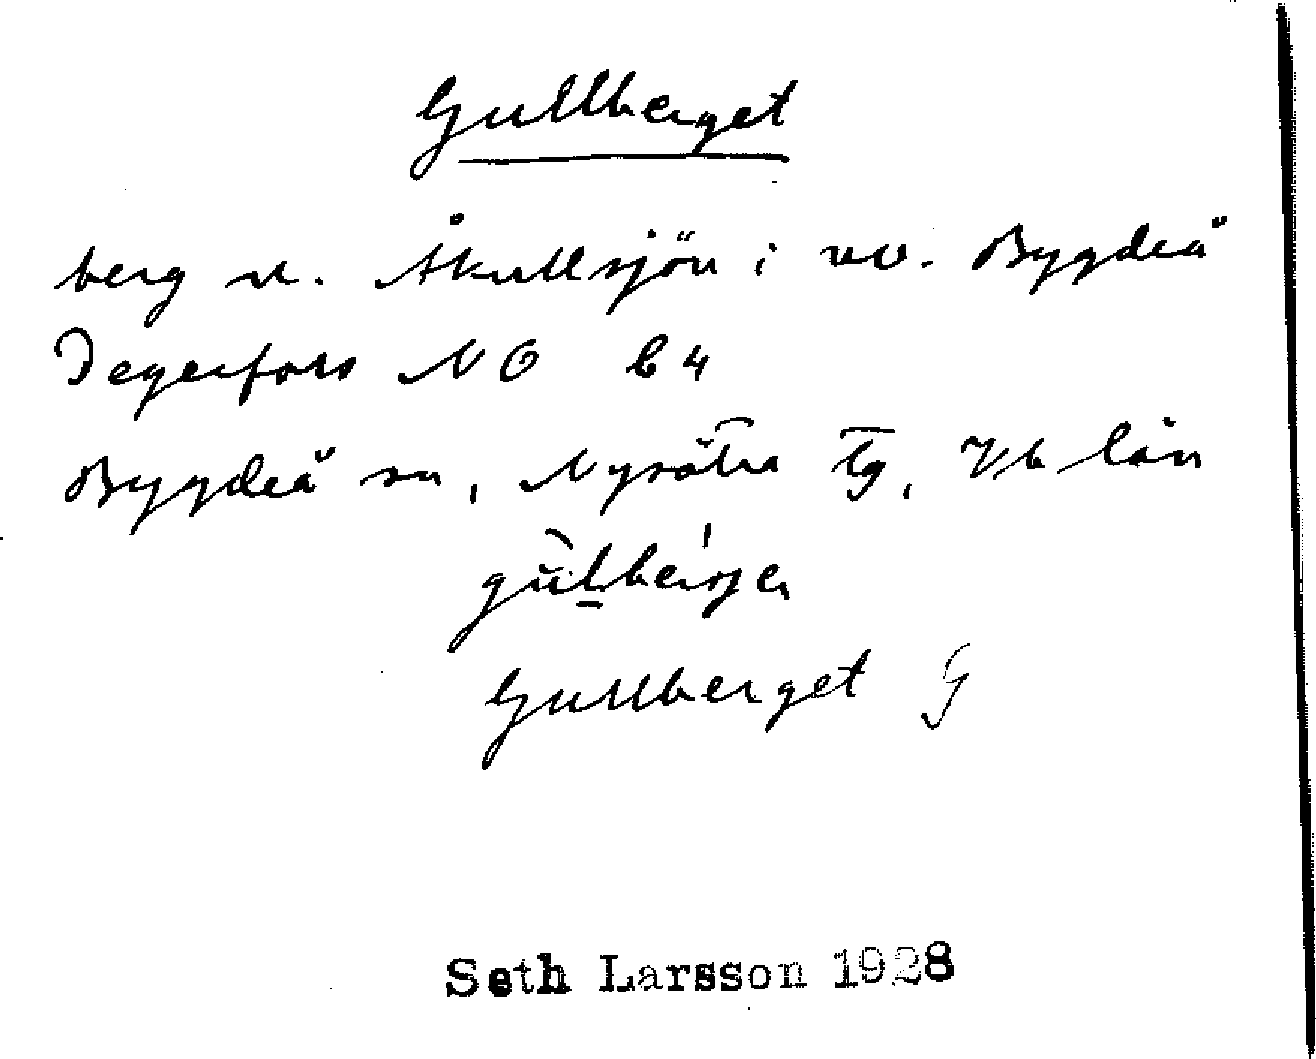 Gullberget
berg n. Åkullsjön i nv. Bygdeå
Degerfors NO b4
Bygdeå sn, Nysätra tg, Vb län
Gullberget G
Seth Larsson 1928